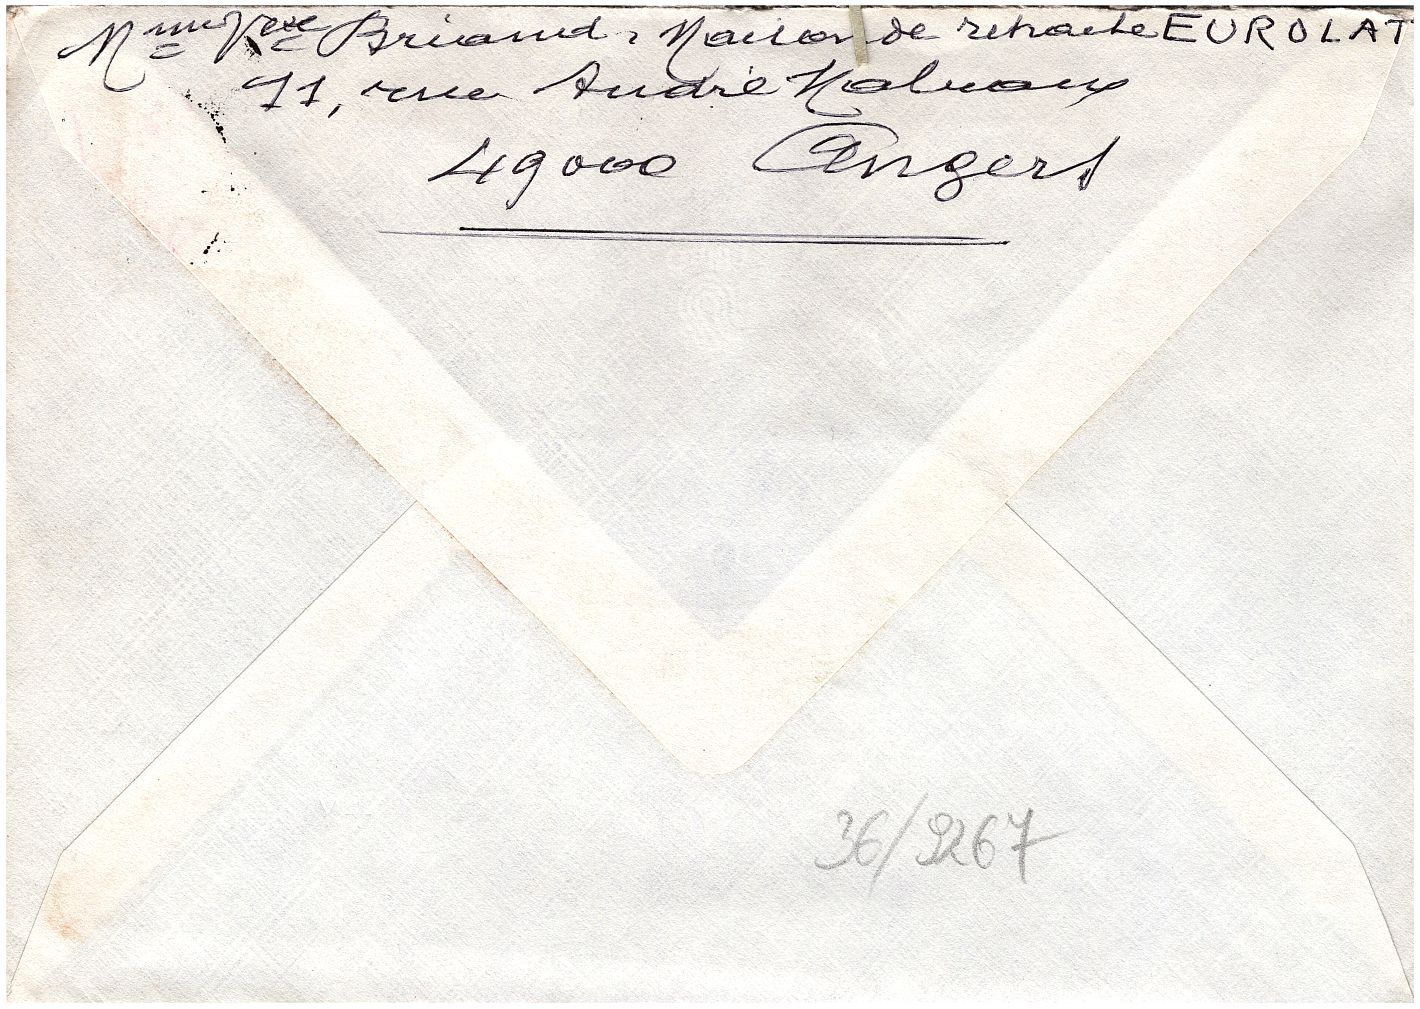 Mme Vve Briand, Maison de retraite EUROLAT
11, rue André Malraux
49000 Angers
36/9267